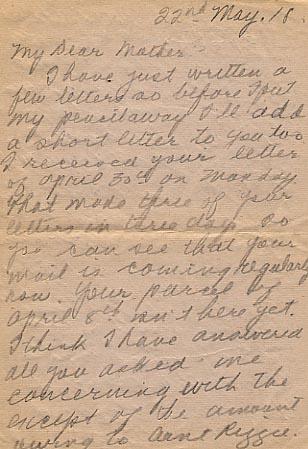 22nd May. 18.
My Dear Mother:
I have just written a
few letters so before I put
my pencil away I'll add
a short letter to you two
I received your letter
of April 30th on Monday
that made three of your
letters in three days so
you can see that your
mail is coming regularly
now. Your parcel of
April 8th isn't here yet.
I think I have answered
all you asked me
concerning with the
except of the amount
owing to Aunt Rizzie.